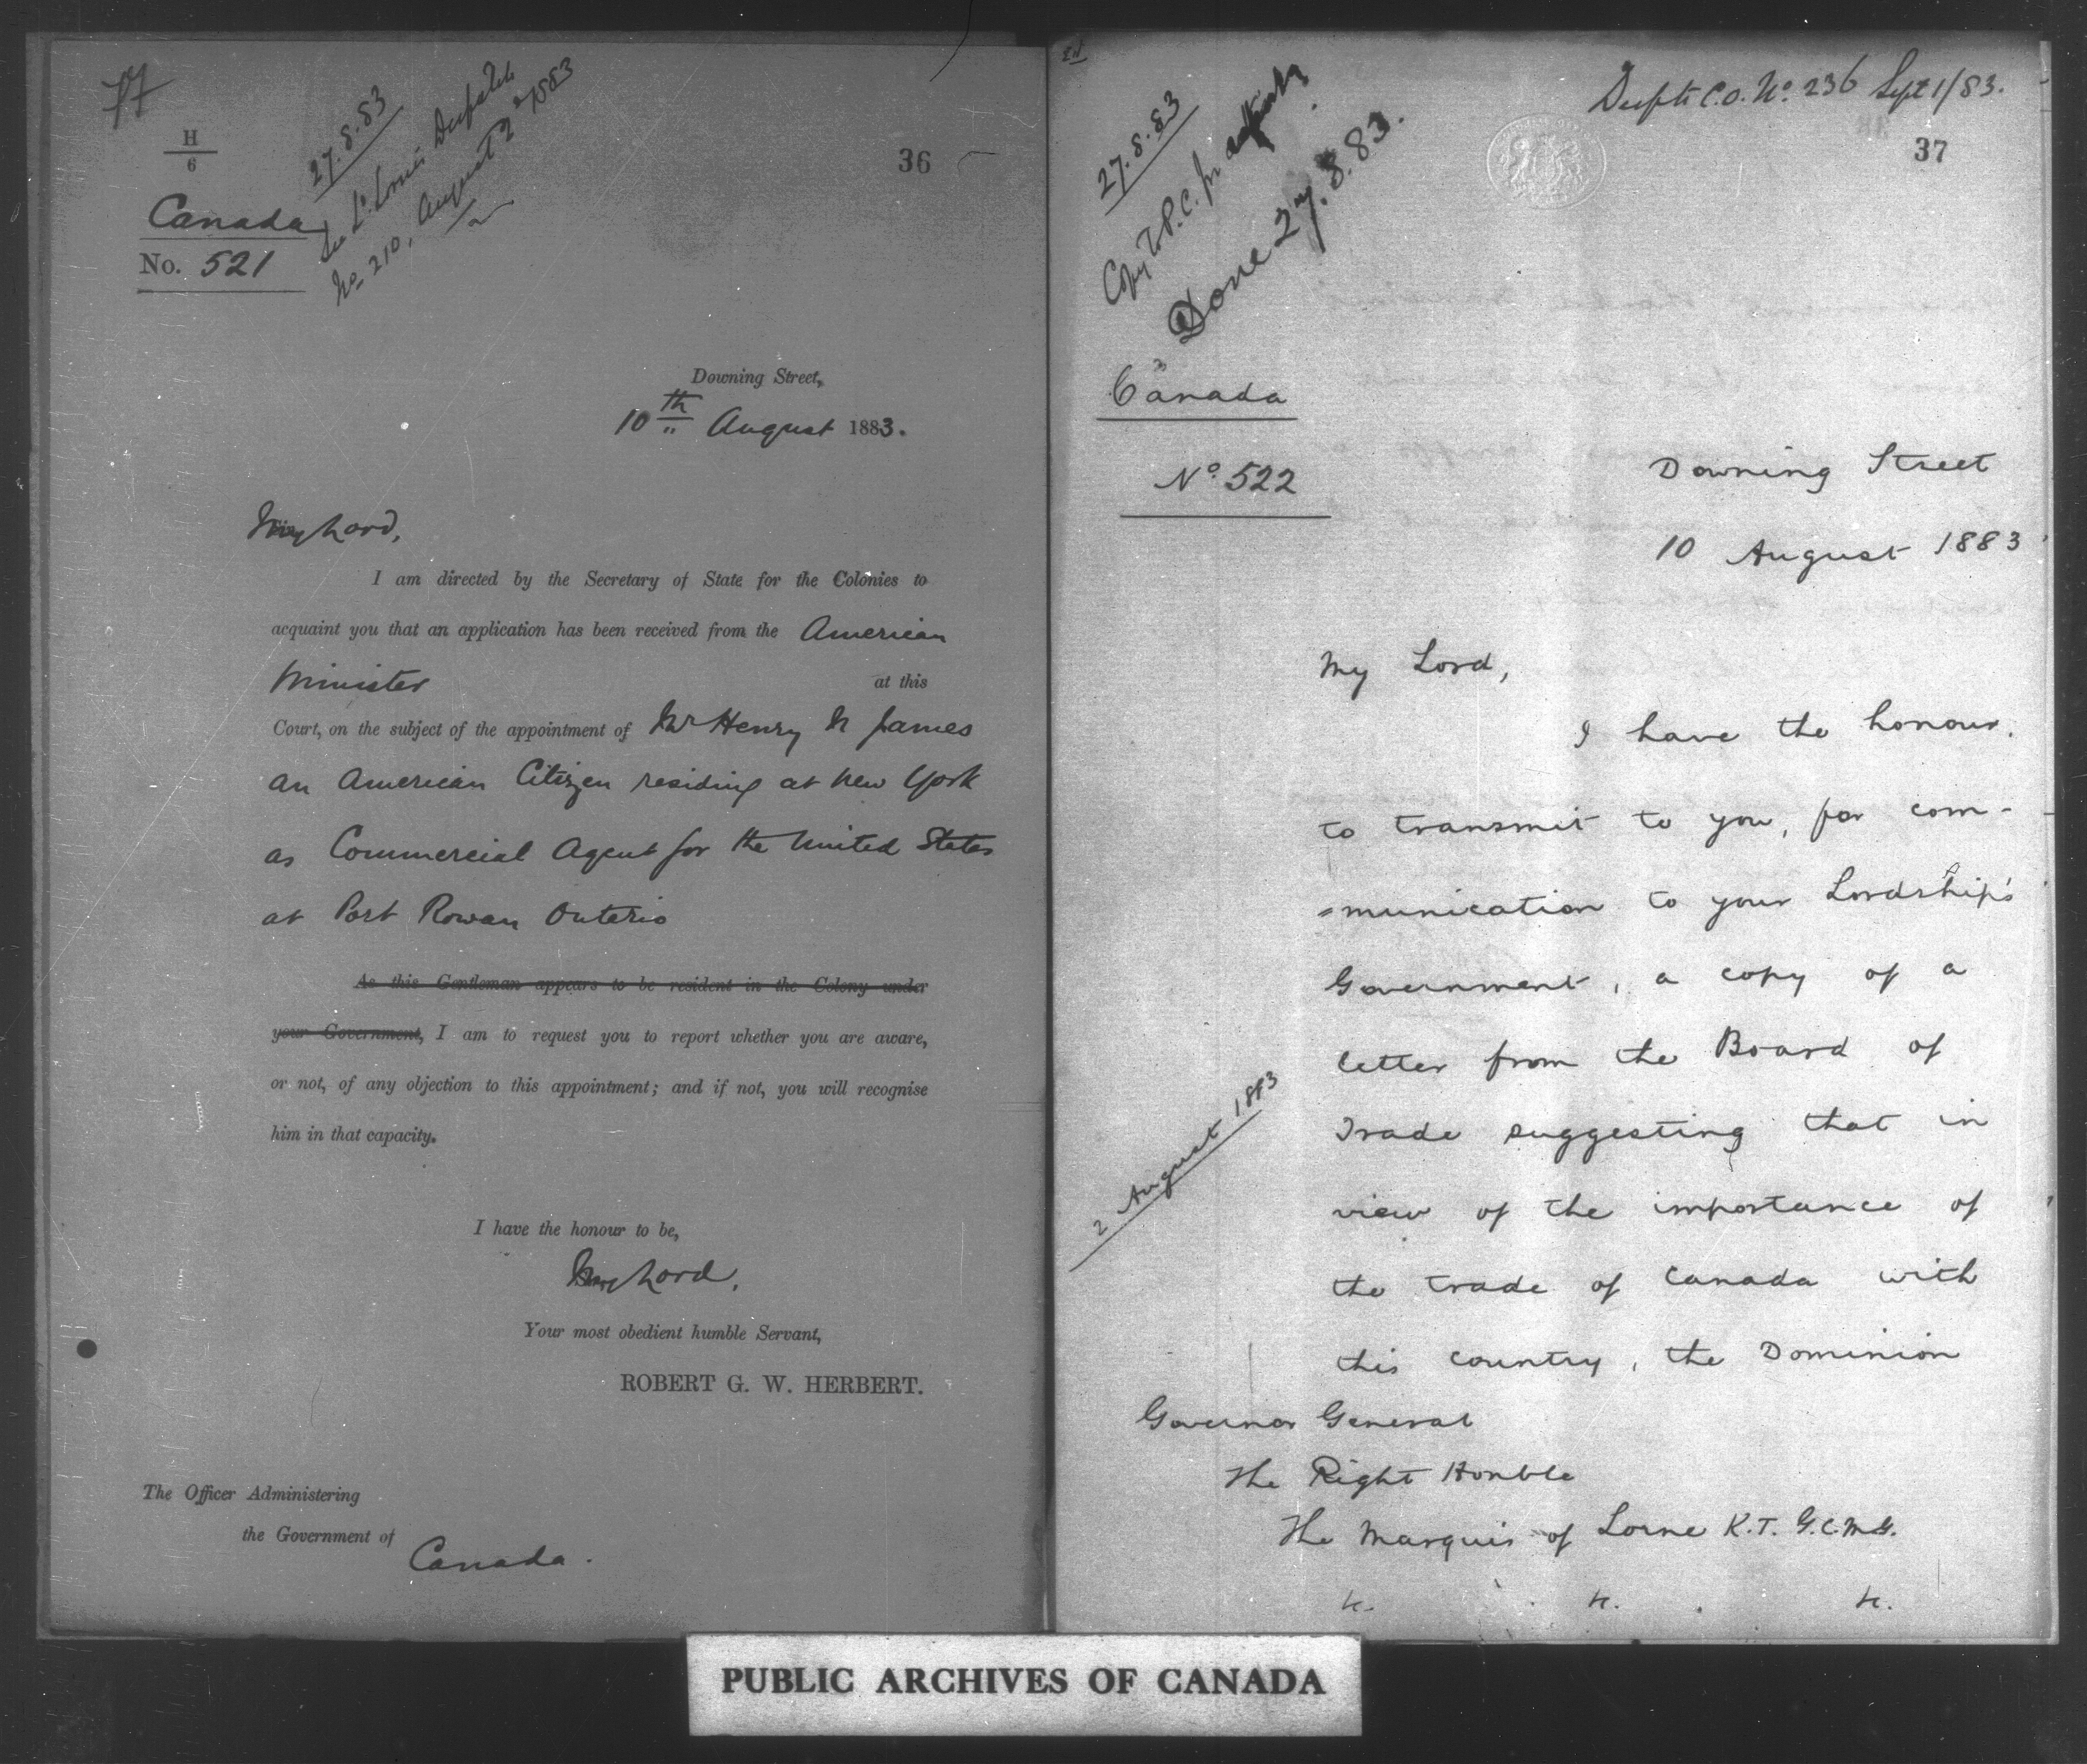 H
6
36
27.8.83
See Ld. Lorne's Despatch
No. 210, August 2nd 1883
Canada
No. 521
Downing Street,
10th August 1883.
My Lord,
I am directed by the Secretary of State for the Colonies to
acquaint you that an application has been received from the American
Minister at this
Court, on the subject of the appointment of Mr Henry N James
an American Citizen residing at New York
as Commercial Agent for the United States
at Port Rowan Ontario
As this Gentleman appears to be resident in the Colony under
your Government, I am to request you to report whether you are aware,
or not, of any objection to this appointment; and if not, you will recognise
him in that capacity.
I have the honour to be,
My Lord,
Your most obedient humble Servant,
ROBERT G. W. HERBERT.
The Officer Administering
the Government of
Canada.
Despt C.O. No. 236 Sept 1/83.
37
27.8.83
Copy to P.C. for
Done 27.8.83.
Canada
No. 522
Downing Street
10 August 1883
My Lord,
I have the honour
to transmit to you, for com-
=munication to your Lordship's
Government, a copy of a
letter from the Board of
2 August 1883
Trade suggesting that in
view of the importance of
the trade of Canada with
this country, the Dominion
Governor General
The Right Honble
The Marquis of Lorne K.T. G.C.M.G.
&c. &c. &c.
PUBLIC ARCHIVES OF CANADA